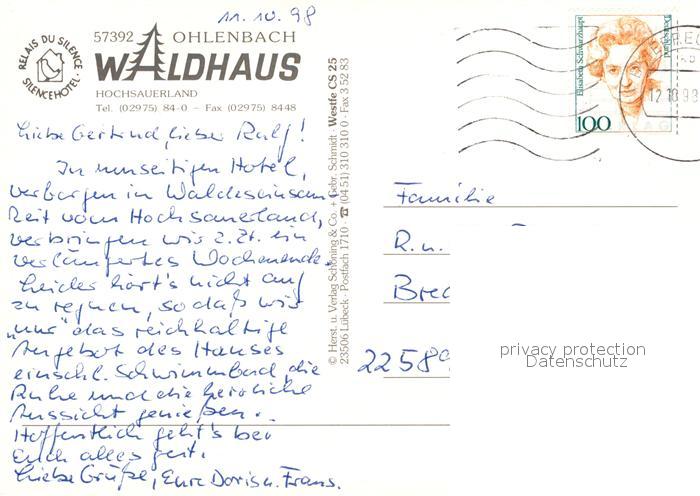 11.10.98
RELAIS DU SILENCE
SILENCEHOTEL
57392 OHLENBACH
WALDHAUS
HOCHSAUERLAND
Tel. (02975) 84-0 – Fax (02975) 8448
Liebe Gertrud, lieber Ralf!
In umseitigen Hotel,
verborgen in Waldeseinsam-
keit vom Hochsauerland,
verbringen wir z.Zt. ein
verlängertes Wochenende.
Leider hört's nicht auf
zu regnen, so daß wir
„nur" das reichhaltige
Angebot des Hauses
einschl. Schwimmbad, die
Ruhe und die herrliche
Aussicht genießen.
Hoffentlich geht's bei
Euch alles gut.
Liebe Grüße, Eure Doris u. Frans.
© Herst. u. Verlag Schöning & Co. + Gebr. Schmidt · Westfe CS 25
23506 Lübeck · Postfach 1710 · ☎ (04 51) 310 310 0 · Fax 3 52 83
Elisabeth Schwarzhaupt
Deutschland
100
12.10.98
Familie
R. u.
Brec
22589
privacy protection
Datenschutz